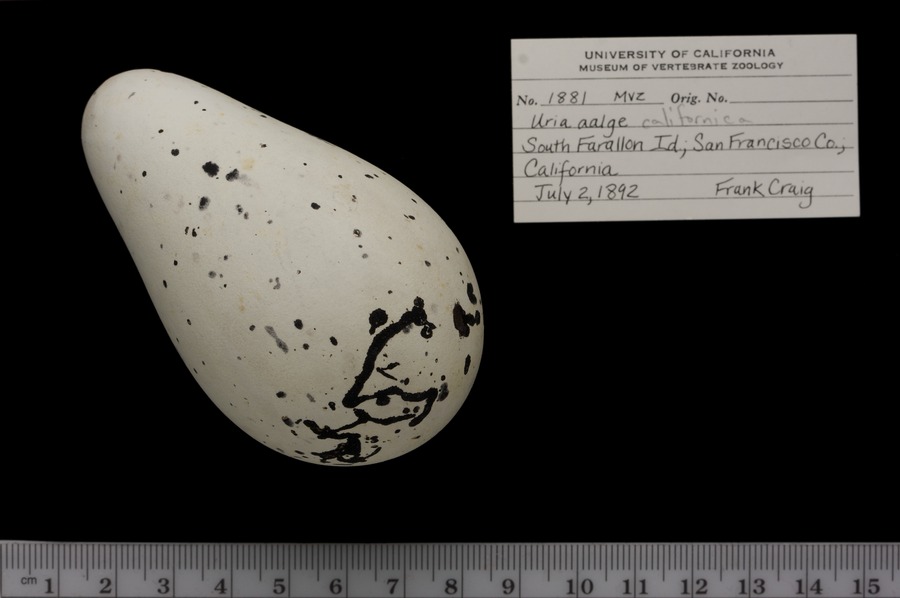 UNIVERSITY OF CALIFORNIA
MUSEUM OF VERTEBRATE ZOOLOGY
No. 1881 MVZ Orig. No.
Uria aalge californica
South Farallon Id.; San Francisco Co.,
California
July 2, 1892 Frank Craig
cm 1 2 3 4 5 6 7 8 9 10 11 12 13 14 15